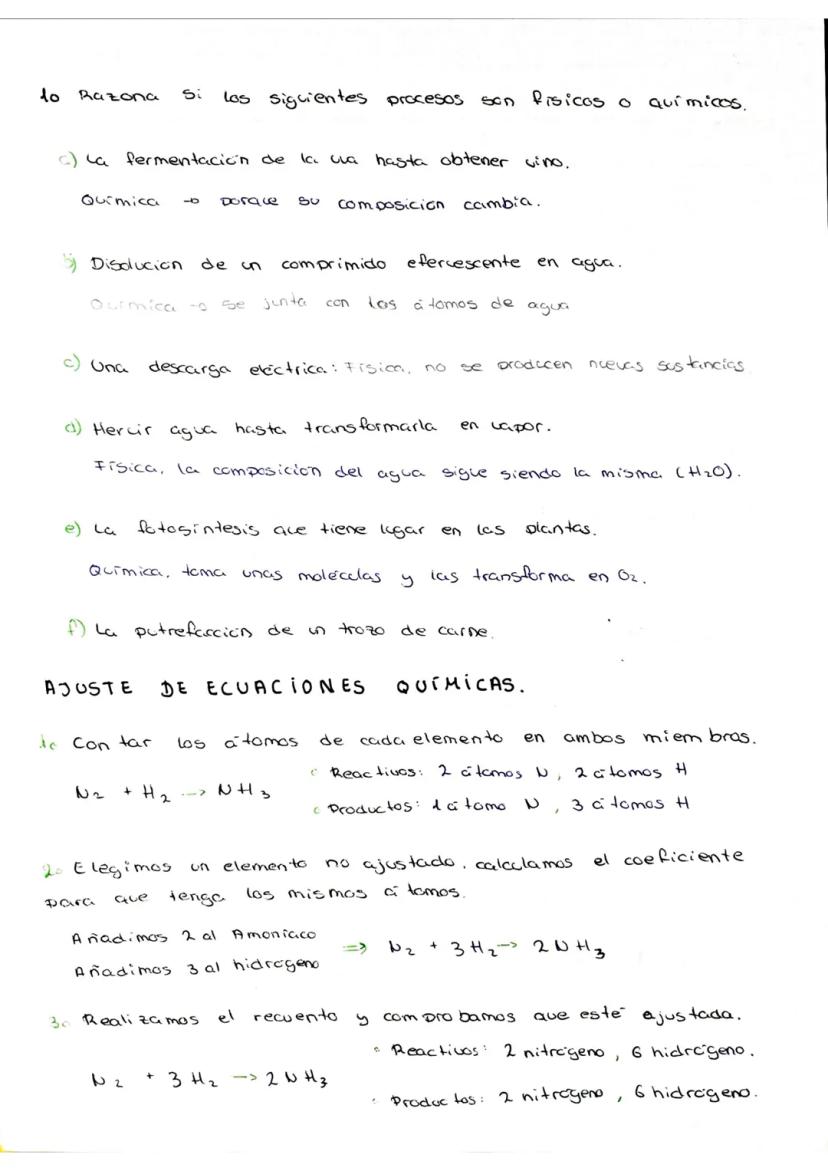 1º Razona si los siguientes procesos son físicos o químicos.
a) La fermentación de la uva hasta obtener vino.
Química → porque su composición cambia.
b) Disolución de un comprimido efervescente en agua.
Química → se junta con los átomos de agua
c) Una descarga eléctrica: Física, no se producen nuevas sustancias
d) Hervir agua hasta transformarla en vapor.
Física, la composición del agua sigue siendo la misma (H₂O).
e) La fotosíntesis que tiene lugar en las plantas.
Química, toma unas moléculas y las transforma en O₂.
f) La putrefacción de un trozo de carne.
AJUSTE DE ECUACIONES QUÍMICAS.
1º Contar los átomos de cada elemento en ambos miembros.
• Reactivos: 2 átomos N, 2 átomos H
N₂ + H₂ --> NH₃
• Productos: 1 átomo N, 3 átomos H
2º Elegimos un elemento no ajustado, calculamos el coeficiente
para que tenga los mismos átomos.
Añadimos 2 al Amoníaco
Añadimos 3 al hidrógeno
=> N₂ + 3 H₂ -> 2 NH₃
3º Realizamos el recuento y comprobamos que esté ajustada.
• Reactivos: 2 nitrógeno, 6 hidrógeno.
N₂ + 3 H₂ -> 2 NH₃
• Productos: 2 nitrógeno, 6 hidrógeno.